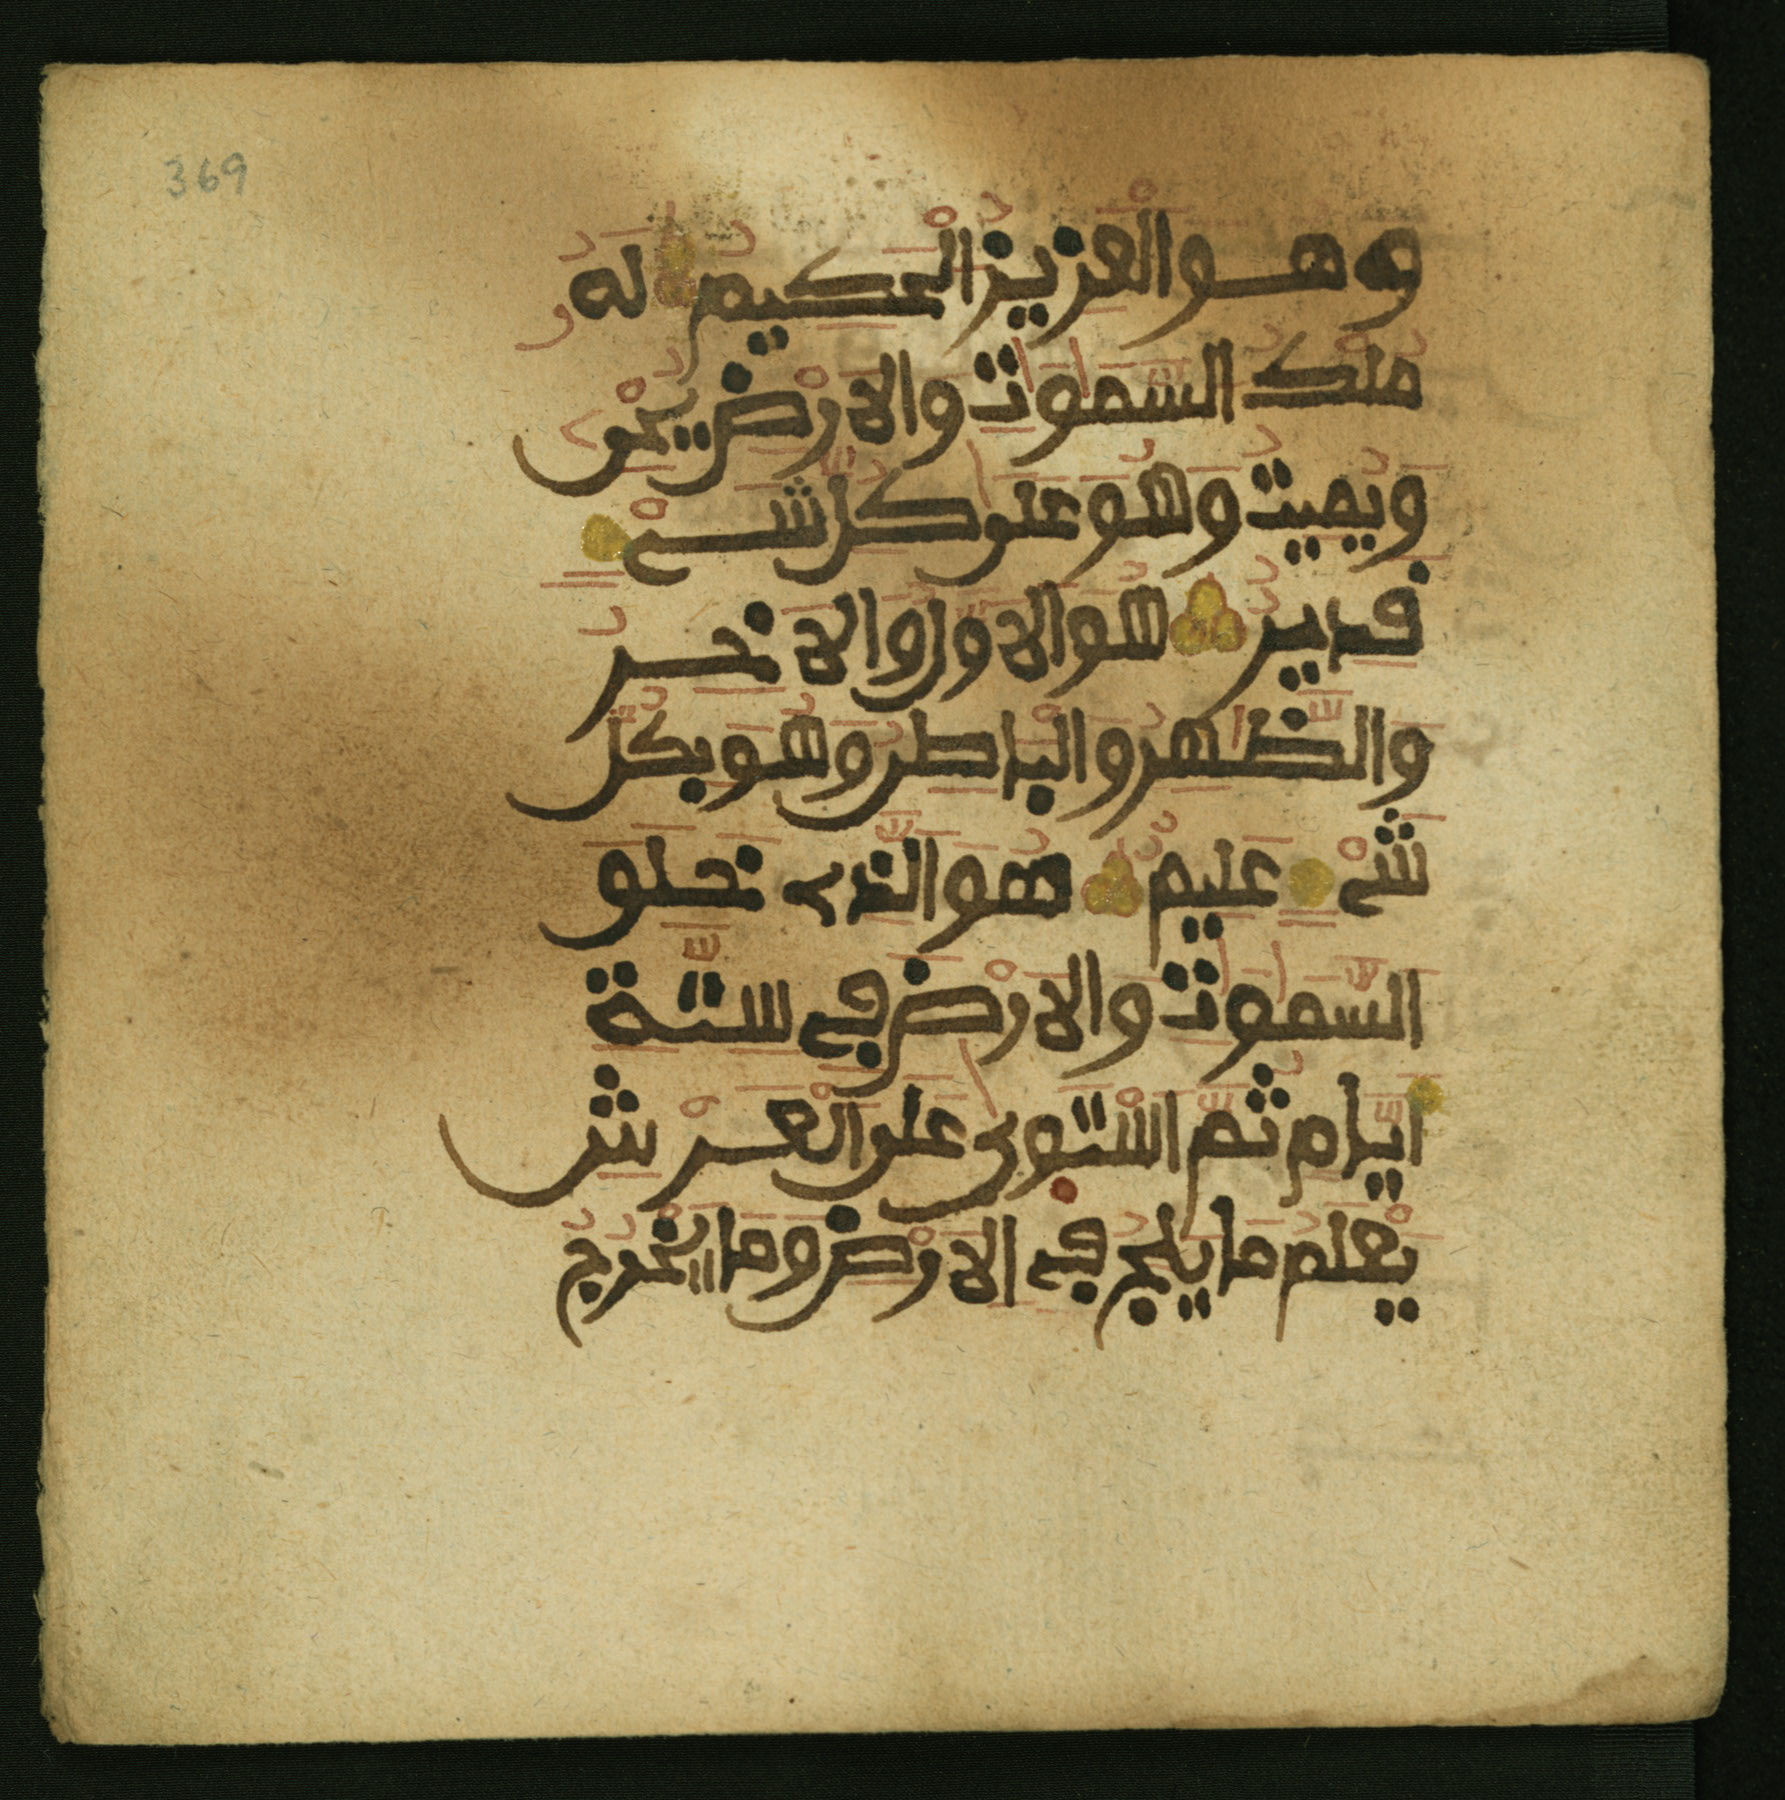 369
وهو العزيز الحكيم له
ملك السموت والارض يحى
ويميت وهو على كل شىء
قدير هو الاول والاخر
والظهر والباطن وهو بكل
شىء عليم هو الذى خلق
السموت والارض فى ستة
ايام ثم استوى على العرش
يعلم ما يلج فى الارض وما يخرج